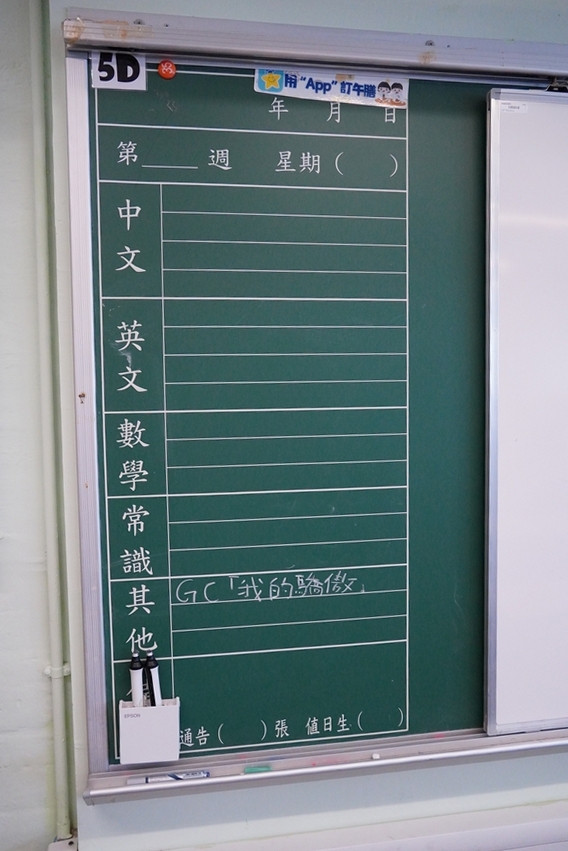 5D
用 "App" 訂午膳
年 月 日
第____週 星期( )
中文
英文
數學
常識
其他
GC「我的驕傲」
EPSON
通告( )張 值日生( )